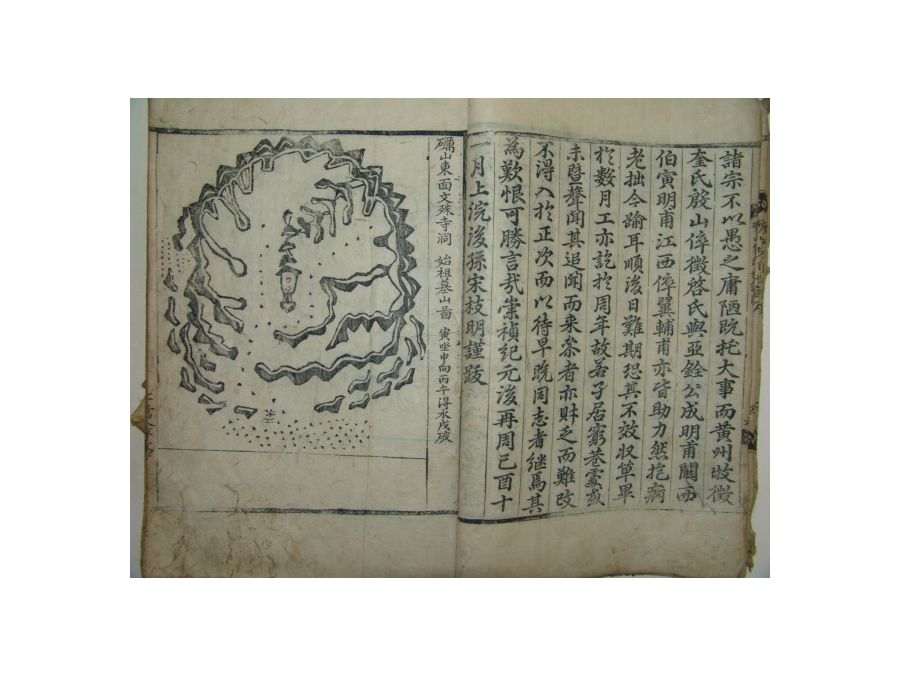 諸宗不以愚之庸陋既托大事而黃州牧徵
奎氏殷山倅徵啓氏與亞銓公成明甫關西
伯寅明甫江西倅翼輔甫亦皆助力然抱病
老拙今踰耳順後日難期恐其不效収單畢
於數月工亦訖於周年故若子居窮巷處或
未曁聲聞其追聞而来叅者亦財乏而難改
不得入於正次而以待早晩同志者継焉其
為歎恨可勝言㦲崇禎紀元後再周己酉十
一月上浣後孫宋枝明謹跋
礪山東面文殊寺洞 始祖墓山啚 寅坐申向丙午得水戍破